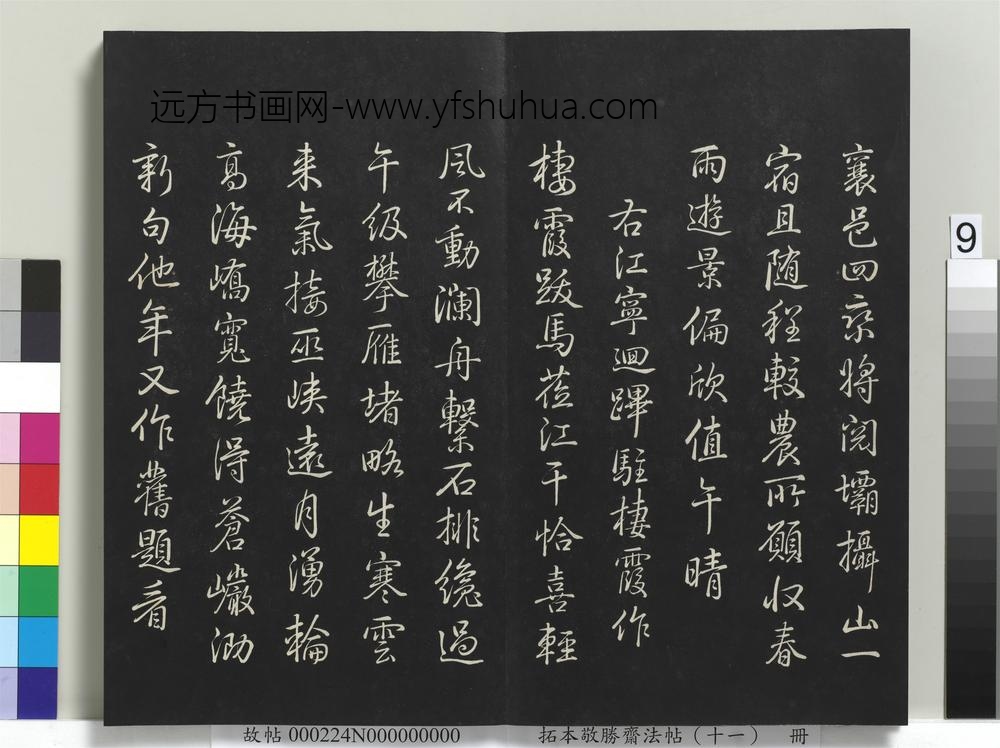 远方书画网-www.yfshuhua.com
襄邑回京將閱壩攝山一
宿且隨程較農所願收春
雨遊景偏欣值午晴
右江寧迴蹕駐棲霞作
棲霞跋馬莅江干恰喜輕
風不動瀾舟繫石排纔過
午級攀雁堵略生寒雲
来氣接巫峽遠月湧輪
高海嶠寬饒得蒼巖泐
新句他年又作舊題看
9
故帖 000224N000000000
拓本敬勝齋法帖（十一） 冊